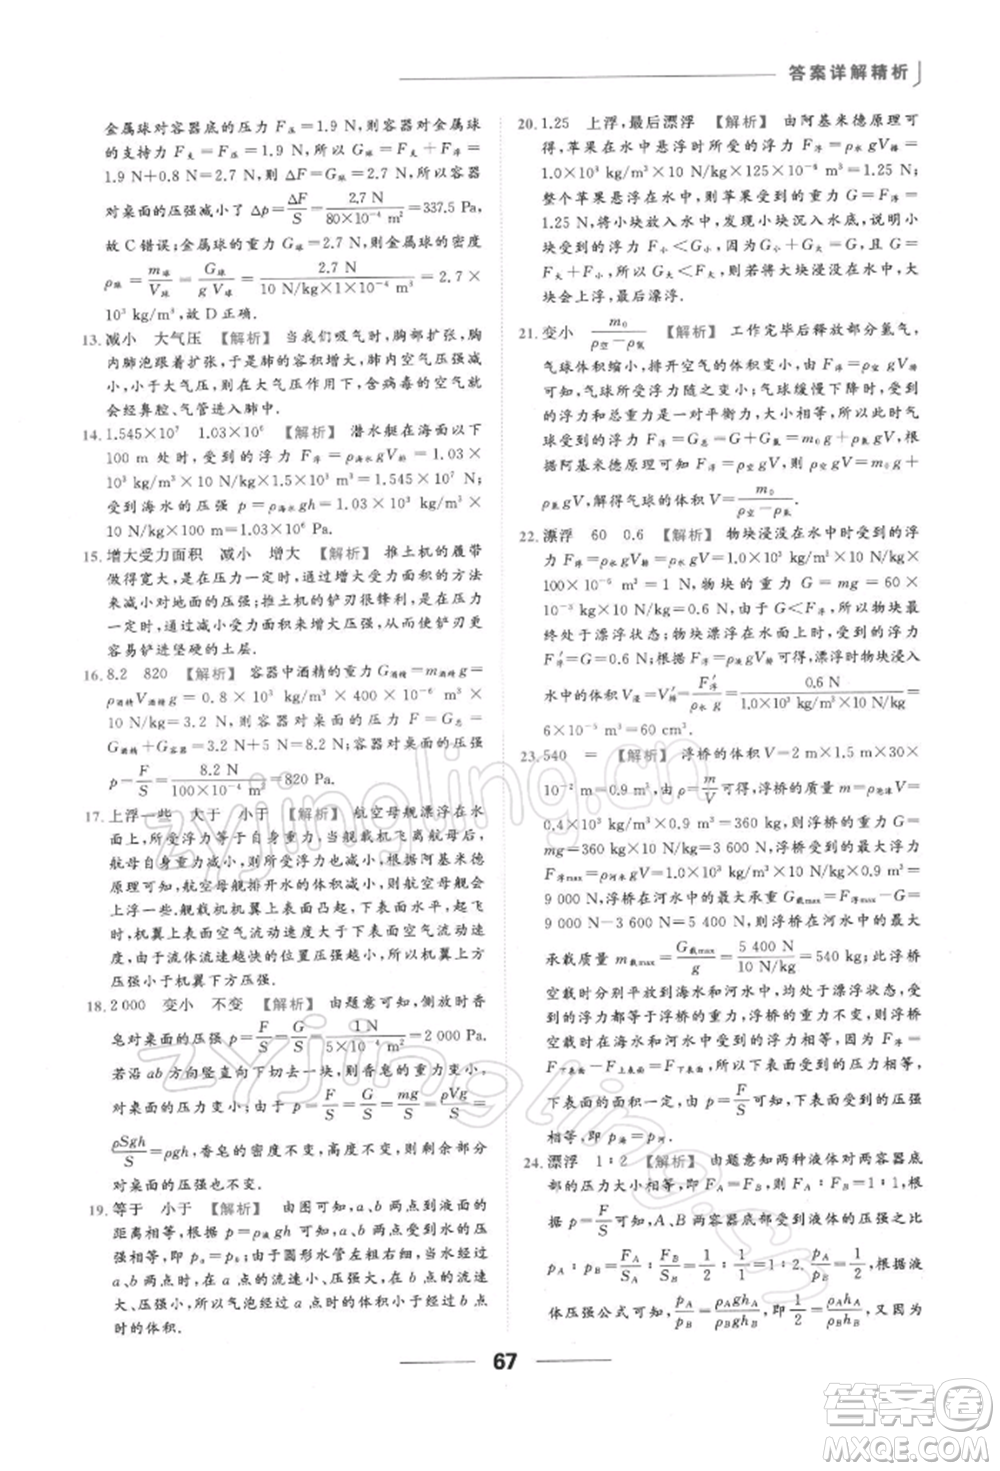 答案详解精析
金属球对容器底的压力 F压=1.9 N,则容器对金属球
的支持力 F支=F压=1.9 N,所以 G球=F支+F浮=
1.9 N+0.8 N=2.7 N,则 ΔF=G球=2.7 N,容器
对桌面的压强减小了 Δp=ΔF/S=2.7 N/(80×10⁻⁴ m²)=337.5 Pa,
故 C 错误;金属球的重力 G球=2.7 N,金属球的密度
ρ球=m球/V球=G球/(g V球)=2.7 N/(10 N/kg×1×10⁻⁴ m³)=2.7×
10³ kg/m³,故 D 正确.
13.减小 大气压 【解析】 当我们吸气时,胸部扩张,胸
内肺泡跟着扩张,于是肺的容积增大,肺内空气压强减
小,在大气压大于肺内气压作用下,含病毒的空气就
会经鼻腔、气管进入肺中.
14.1.545×10⁷ 1.03×10⁶ 【解析】 潜水艇在海面以下
100 m 处时,受到的浮力 F浮=ρ海水gV排=1.03×
10³ kg/m³×10 N/kg×1.5×10³ m³=1.545×10⁷ N;
受到海水的压强 p=ρ海水gh=1.03×10³ kg/m³×
10 N/kg×100 m=1.03×10⁶ Pa.
15.增大受力面积 减小 增大 【解析】 推土机的履带
做得宽大,是在压力一定时,用增大受力面积的方法
来减小对地面的压强;推土机的铲刃很锋利,是在压
力一定时,通过减小受力面积来增大压强,铲刃更
容易铲进坚硬的土层.
16.8.2 820 【解析】 容器中酒精的重力 G酒精=m酒精g=
ρ酒精V酒精g=0.8×10³ kg/m³×400×10⁻⁶ m³×
10 N/kg=3.2 N,则容器对桌面的压力 F=G总=
G酒精+G容器=3.2 N+5 N=8.2 N;容器对桌面的压强
p=F/S=8.2 N/(100×10⁻⁴ m²)=820 Pa.
17.上浮一些 大于 小于 【解析】 航空母舰漂浮在水
面上,所受浮力等于自身重力,舰载机飞离航母后,
航母自身重力减小,所受浮力减小,根据阿基米德
原理可知,航空母舰排开水的体积减小,所以航母将
上浮一些.舰载机机翼的上表面凸起,起飞
时,机翼上表面空气流动速度大于下表面空气流动速
度,由于流体流速越快的位置压强越小,所以机翼上
方压强小于机翼下方压强.
18.2 000 变小 不变 【解析】 由题意可知,侧放时香
皂对桌面的压强 p=F/S=G/S=1 N/(5×10⁻⁴ m²)=2 000 Pa.
若沿 ab 方向竖直向下切去一块,则香皂的重力变小,
对桌面的压力变小;由于 p=F/S=G/S=mg/S=ρVg/S=
ρSgh/S=ρgh,香皂的密度不变,高度不变,则剩余部分
对桌面的压强也不变.
19.等于 小于 【解析】 由图可知,a、b 两点到液面的
距离相等,根据 p=ρgh 可知,a、b 两点受到的水的
压强相等,即 pa=pb;由于圆形水管左粗右细,因
此,当水流动时,a 点的流速小、压强大,b 点的流速
大、压强小,所以气泡在 a 点时的体积小于在 b 点
时的体积.
20.1.25 上浮,最后漂浮 【解析】 由阿基米德原理可
得,苹果在水中悬浮时所受的浮力 F浮=ρ水gV排=
1.0×10³ kg/m³×10 N/kg×125×10⁻⁶ m³=1.25 N;
整个苹果悬浮,则苹果受到的重力 G=F浮=
1.25 N.切下的小块放入水中,发现小块沉入水底,说明小
块受到的浮力 F浮小<G小,由于 G小+G大=G,
所以 F浮大>G大,则大块浸没在水中后,大
块会上浮,最后漂浮.
21.变小 m₀/(ρ空−ρ氦) 【解析】 工作完毕后释放部分氦气,
气球体积缩小,排开空气的体积变小,根据 F浮=ρ空gV排
可知,气球所受浮力随之变小;气球缓慢下降时,受到
的浮力和总重力是一对平衡力,大小相等,所以此时气
球受到的浮力 F浮=G总=G₀+G氦=m₀g+ρ氦gV,根
据阿基米德原理可得 F浮=ρ空gV,则 ρ空gV=m₀g+
ρ氦gV,解得气球的体积 V=m₀/(ρ空−ρ氦).
22.漂浮 60 0.6 【解析】 物块浸没在水中时受到的浮
力 F浮=ρ水gV排=ρ水gV=1.0×10³ kg/m³×10 N/kg×
100×10⁻⁶ m³=1 N,物块的重力 G=mg=60×
10⁻³ kg×10 N/kg=0.6 N,由于 G<F浮,所以物块最
终处于漂浮状态.物块漂浮在水面上时,受到的浮力
F′浮=G=0.6 N;根据 F浮=ρ液gV排可得,此时物块浸入
水中的体积 V浸=V′排=F′浮/(ρ水g)=0.6 N/(1.0×10³ kg/m³×10 N/kg)=
6×10⁻⁵ m³=60 cm³.
23.540 = 【解析】 浮桥的体积 V=2 m×1.5 m×30×
10⁻² m=0.9 m³,根据 ρ=m/V可得,浮桥的质量 m=ρ泡沫V=
0.4×10³ kg/m³×0.9 m³=360 kg,则浮桥的重力 G=
mg=360 kg×10 N/kg=3 600 N;浮桥受到的最大浮力
F浮max=ρ河水gV=1.0×10³ kg/m³×10 N/kg×0.9 m³=
9 000 N,浮桥在河水中的最大载重 G载max=F浮max−G=
9 000 N−3 600 N=5 400 N,则浮桥在河水中的最大
承载质量 m载max=G载max/g=5 400 N/(10 N/kg)=540 kg;浮桥
空载时分别平放于海水和河水中,均处于漂浮状态,受到
的浮力都等于浮桥的重力,浮桥的重力不变,所以浮桥
空载时在海水和河水中所受的浮力相等,因为 F浮=
F下表面−F上表面=F下表面,所以浮桥下表面受到的压力相等,
下表面的面积一定,由 p=F/S可知,下表面受到的压强
相等,即 p海=p河.
24.漂浮 1∶2 【解析】 由题意知两种液体对容器底部
的压力大小相等,即 FA=FB,则 FA∶FB=1∶1,根
据 p=F/S可知,A、B 两容器底部受到液体的压强之比
pA∶pB=FA/SA∶FB/SB=1/2∶1/1=1/2;由 p=ρgh,根据液
体压强公式可知,pA/pB=ρAghA/ρBghB,即1/2=ρAghA/ρBghB,
67
zyjingling.cn
zyjingling.cn
答案圈
MXQE.COM